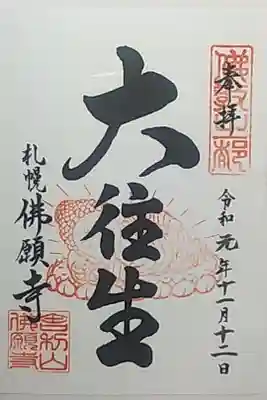 奉拝
令和元年十一月十二日
大往生
札幌佛願寺